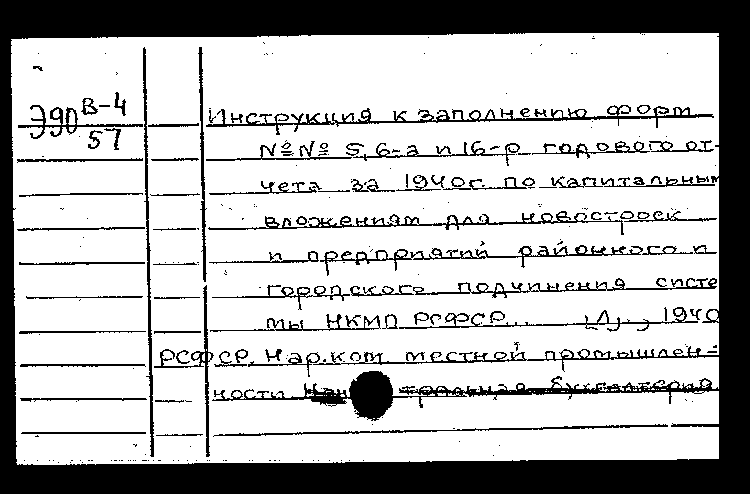 Э90 В-4
57
Инструкция к заполнению форм
№№ 5, 6-а и 16-р годового от-
чета за 1940г. по капитальным
вложениям для новостроек
и предприятий районного и
городского подчинения систе
мы НКМП РСФСР... [Л]., 1940
РСФСР. Нар.ком. местной промышлен-
ности. бухгалтерия.